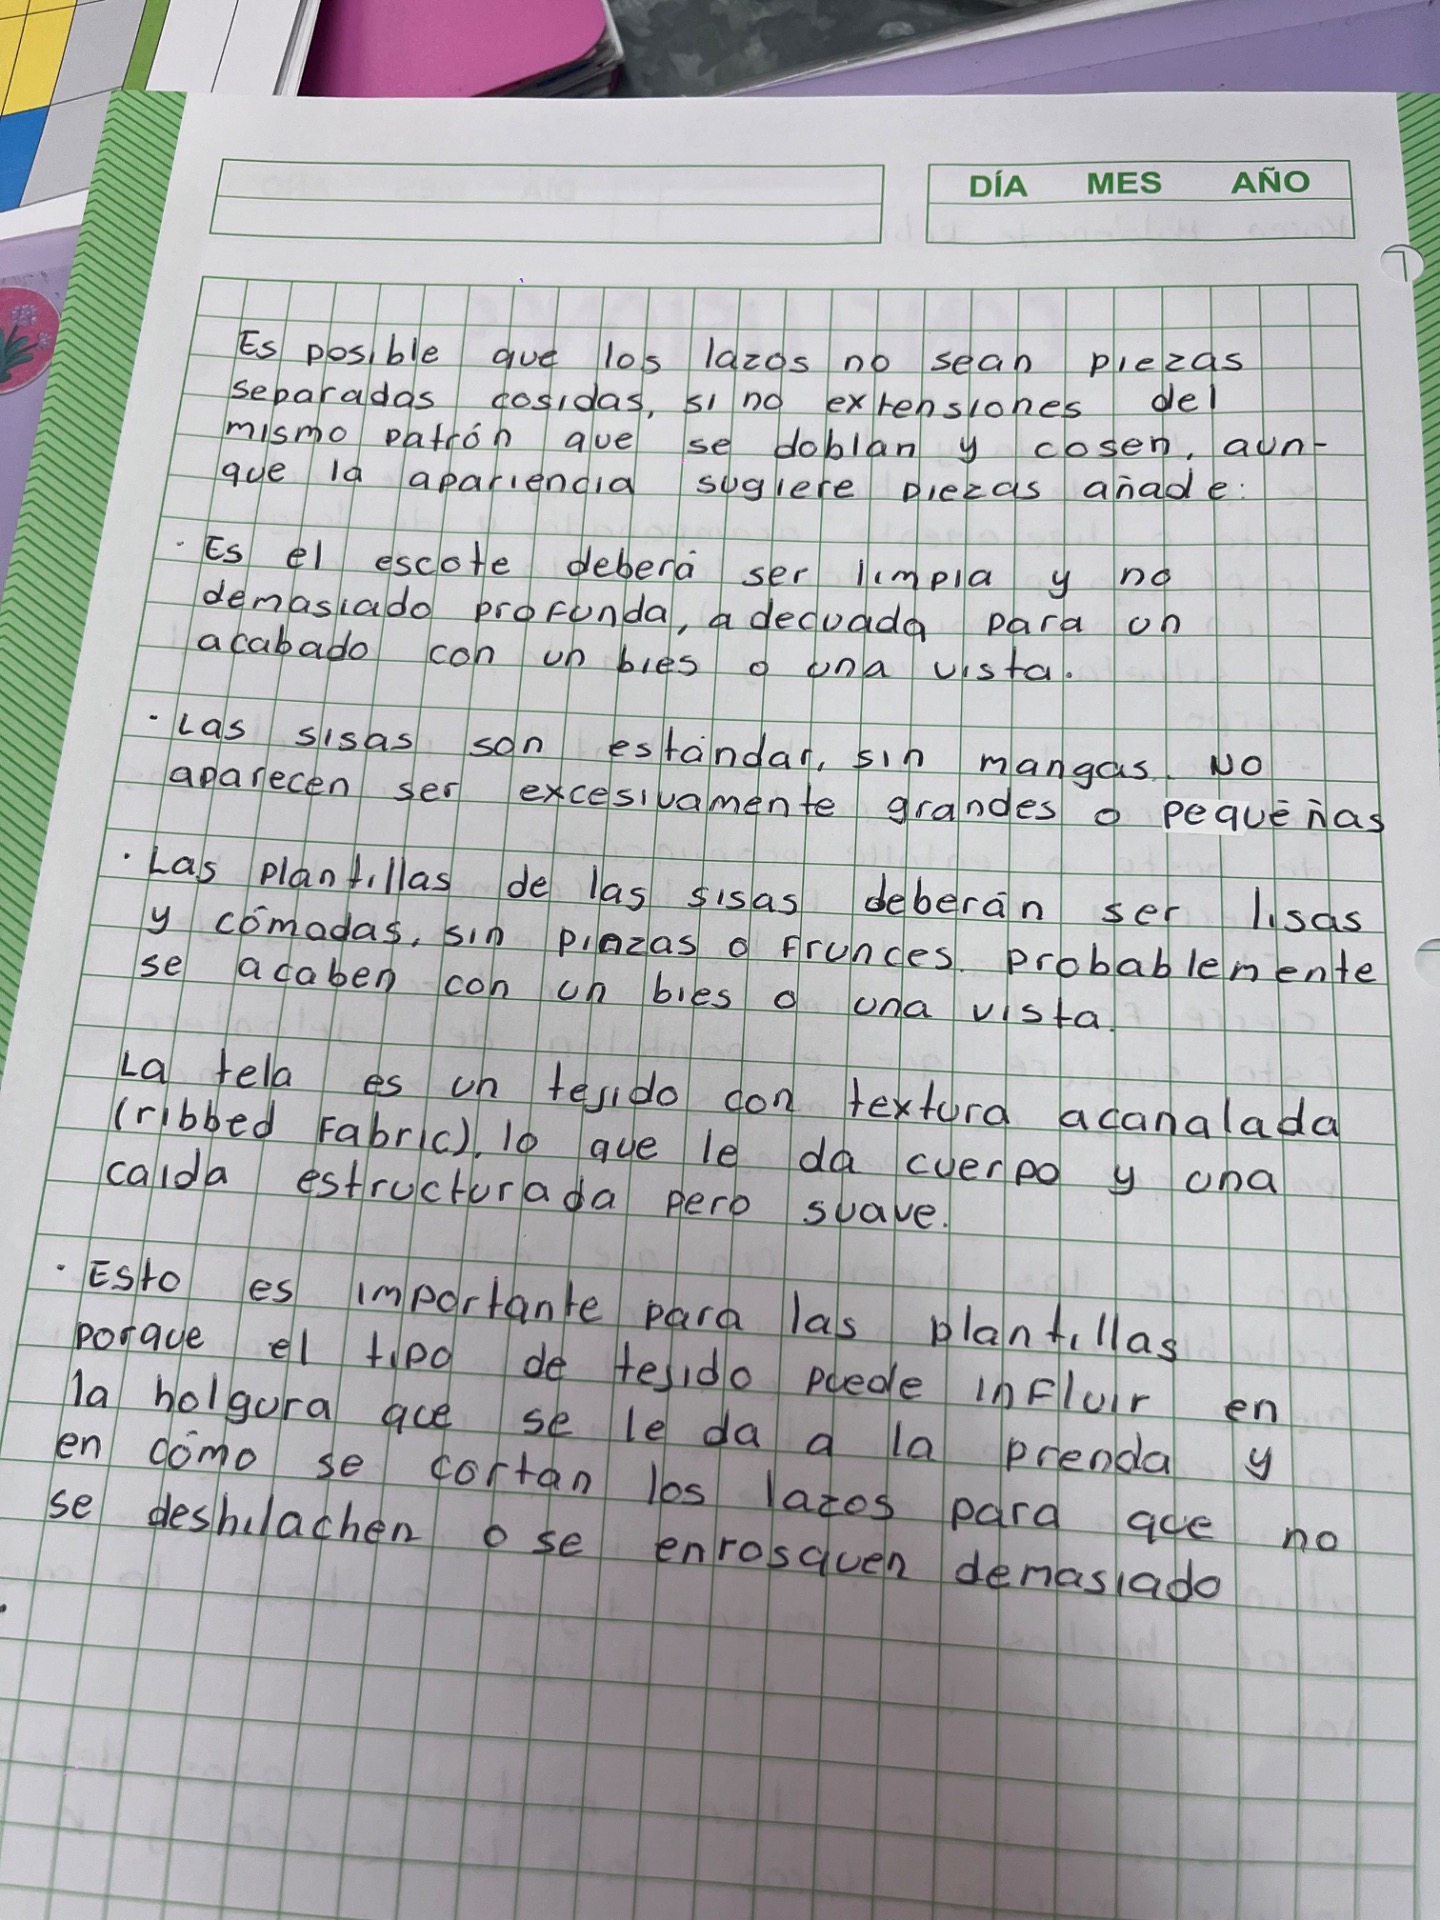 DÍA MES AÑO
Es posible que los lazos no sean piezas
separadas cosidas, sino extensiones del
mismo patrón que se doblan y cosen, aun-
que la apariencia sugiere piezas añade:
· Es el escote deberá ser limpia y no
demasiado profunda, adecuada para un
acabado con un bies o una vista.
· Las sisas son estándar, sin mangas. No
aparecen ser excesivamente grandes o pequeñas
· Las plantillas de las sisas deberán ser lisas
y cómodas, sin pinzas o frunces. Probablemente
se acaben con un bies o una vista.
La tela es un tejido con textura acanalada
(ribbed Fabric), lo que le da cuerpo y una
caida estructurada pero suave.
· Esto es importante para las plantillas
porque el tipo de tejido puede influir en
la holgura que se le da a la prenda y
en cómo se cortan los lazos para que no
se deshilachen o se enrosquen demasiado